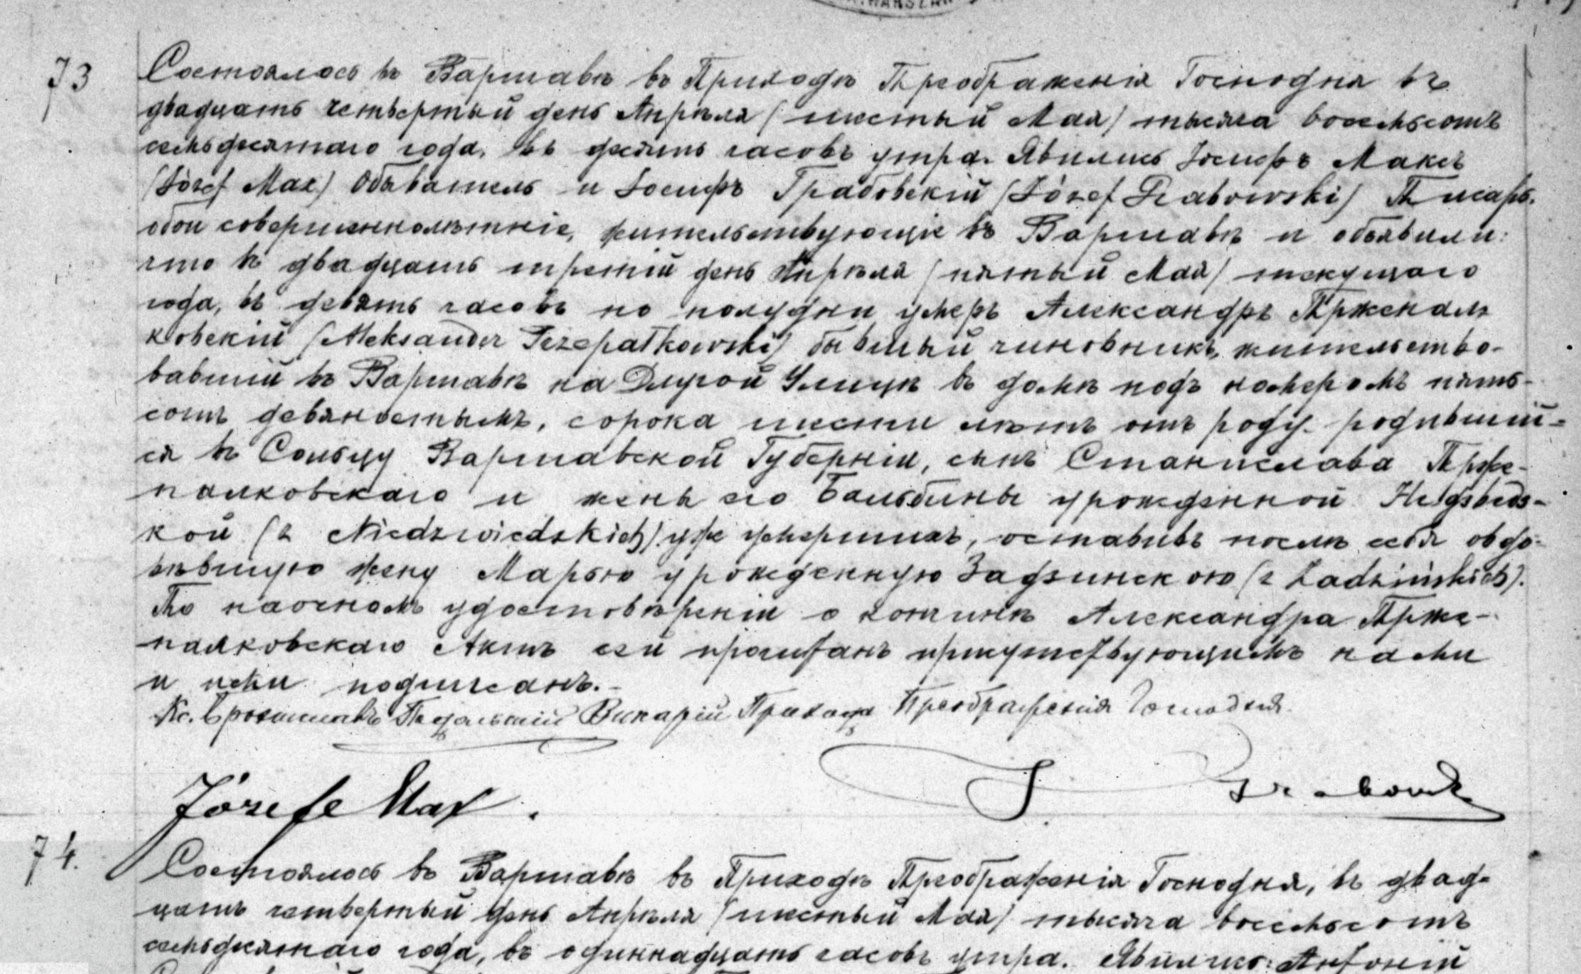 73
Состоялось въ Варшавѣ въ Приходѣ Преображенія Господня въ
двадцать четвертый день Апрѣля (шестый Мая) тысяча восемьсотъ
семьдесятаго года, въ десять часовъ утра. Явились Іосифъ Максъ
(Józef Max) Обыватель и Іосифъ Грабовскій (Józef Grabowski) Писарь.
обои совершеннолѣтніе, жительствующіе въ Варшавѣ и объявили:
что въ двадцать третій день Апрѣля (пятый Мая) текущаго
года, въ девять часовъ по полудни умеръ Александръ Пржепал
ковскій (Aleksander Przepałkowski) бывшый чиновникъ, жительство-
вавшій въ Варшавѣ на Длугой Улицѣ въ домѣ подъ номеромъ пять-
сотъ девяностымъ, сорока шести лѣтъ отъ роду родивший-
ся въ Варшавской Губерніи, сынъ Станислава Прже-
палковскаго и жены его Бальбины урожденной
кой (z Niedzwiedzkich) уже умершихъ, оставивъ послѣ себя овдо-
вѣвшую жену Марью урожденную Задзинскою (z Zadzińskich).
По наочномъ удостовѣреніи о кончинѣ Александра Прже-
палковскаго Актъ сей прочитанъ присутствующимъ нами
и ними подписанъ.-
Кс. Викарій Прихода Преображенія Господня.
Józefe Max. J. Grabowsk
74.
Состоялось въ Варшавѣ въ Приходѣ Преображенія Господня, въ двад-
цать четвертый день Апрѣля (шестый Мая) тысяча восемьсотъ
семьдесятаго года, въ одиннадцать часовъ утра. Явились: Антоній